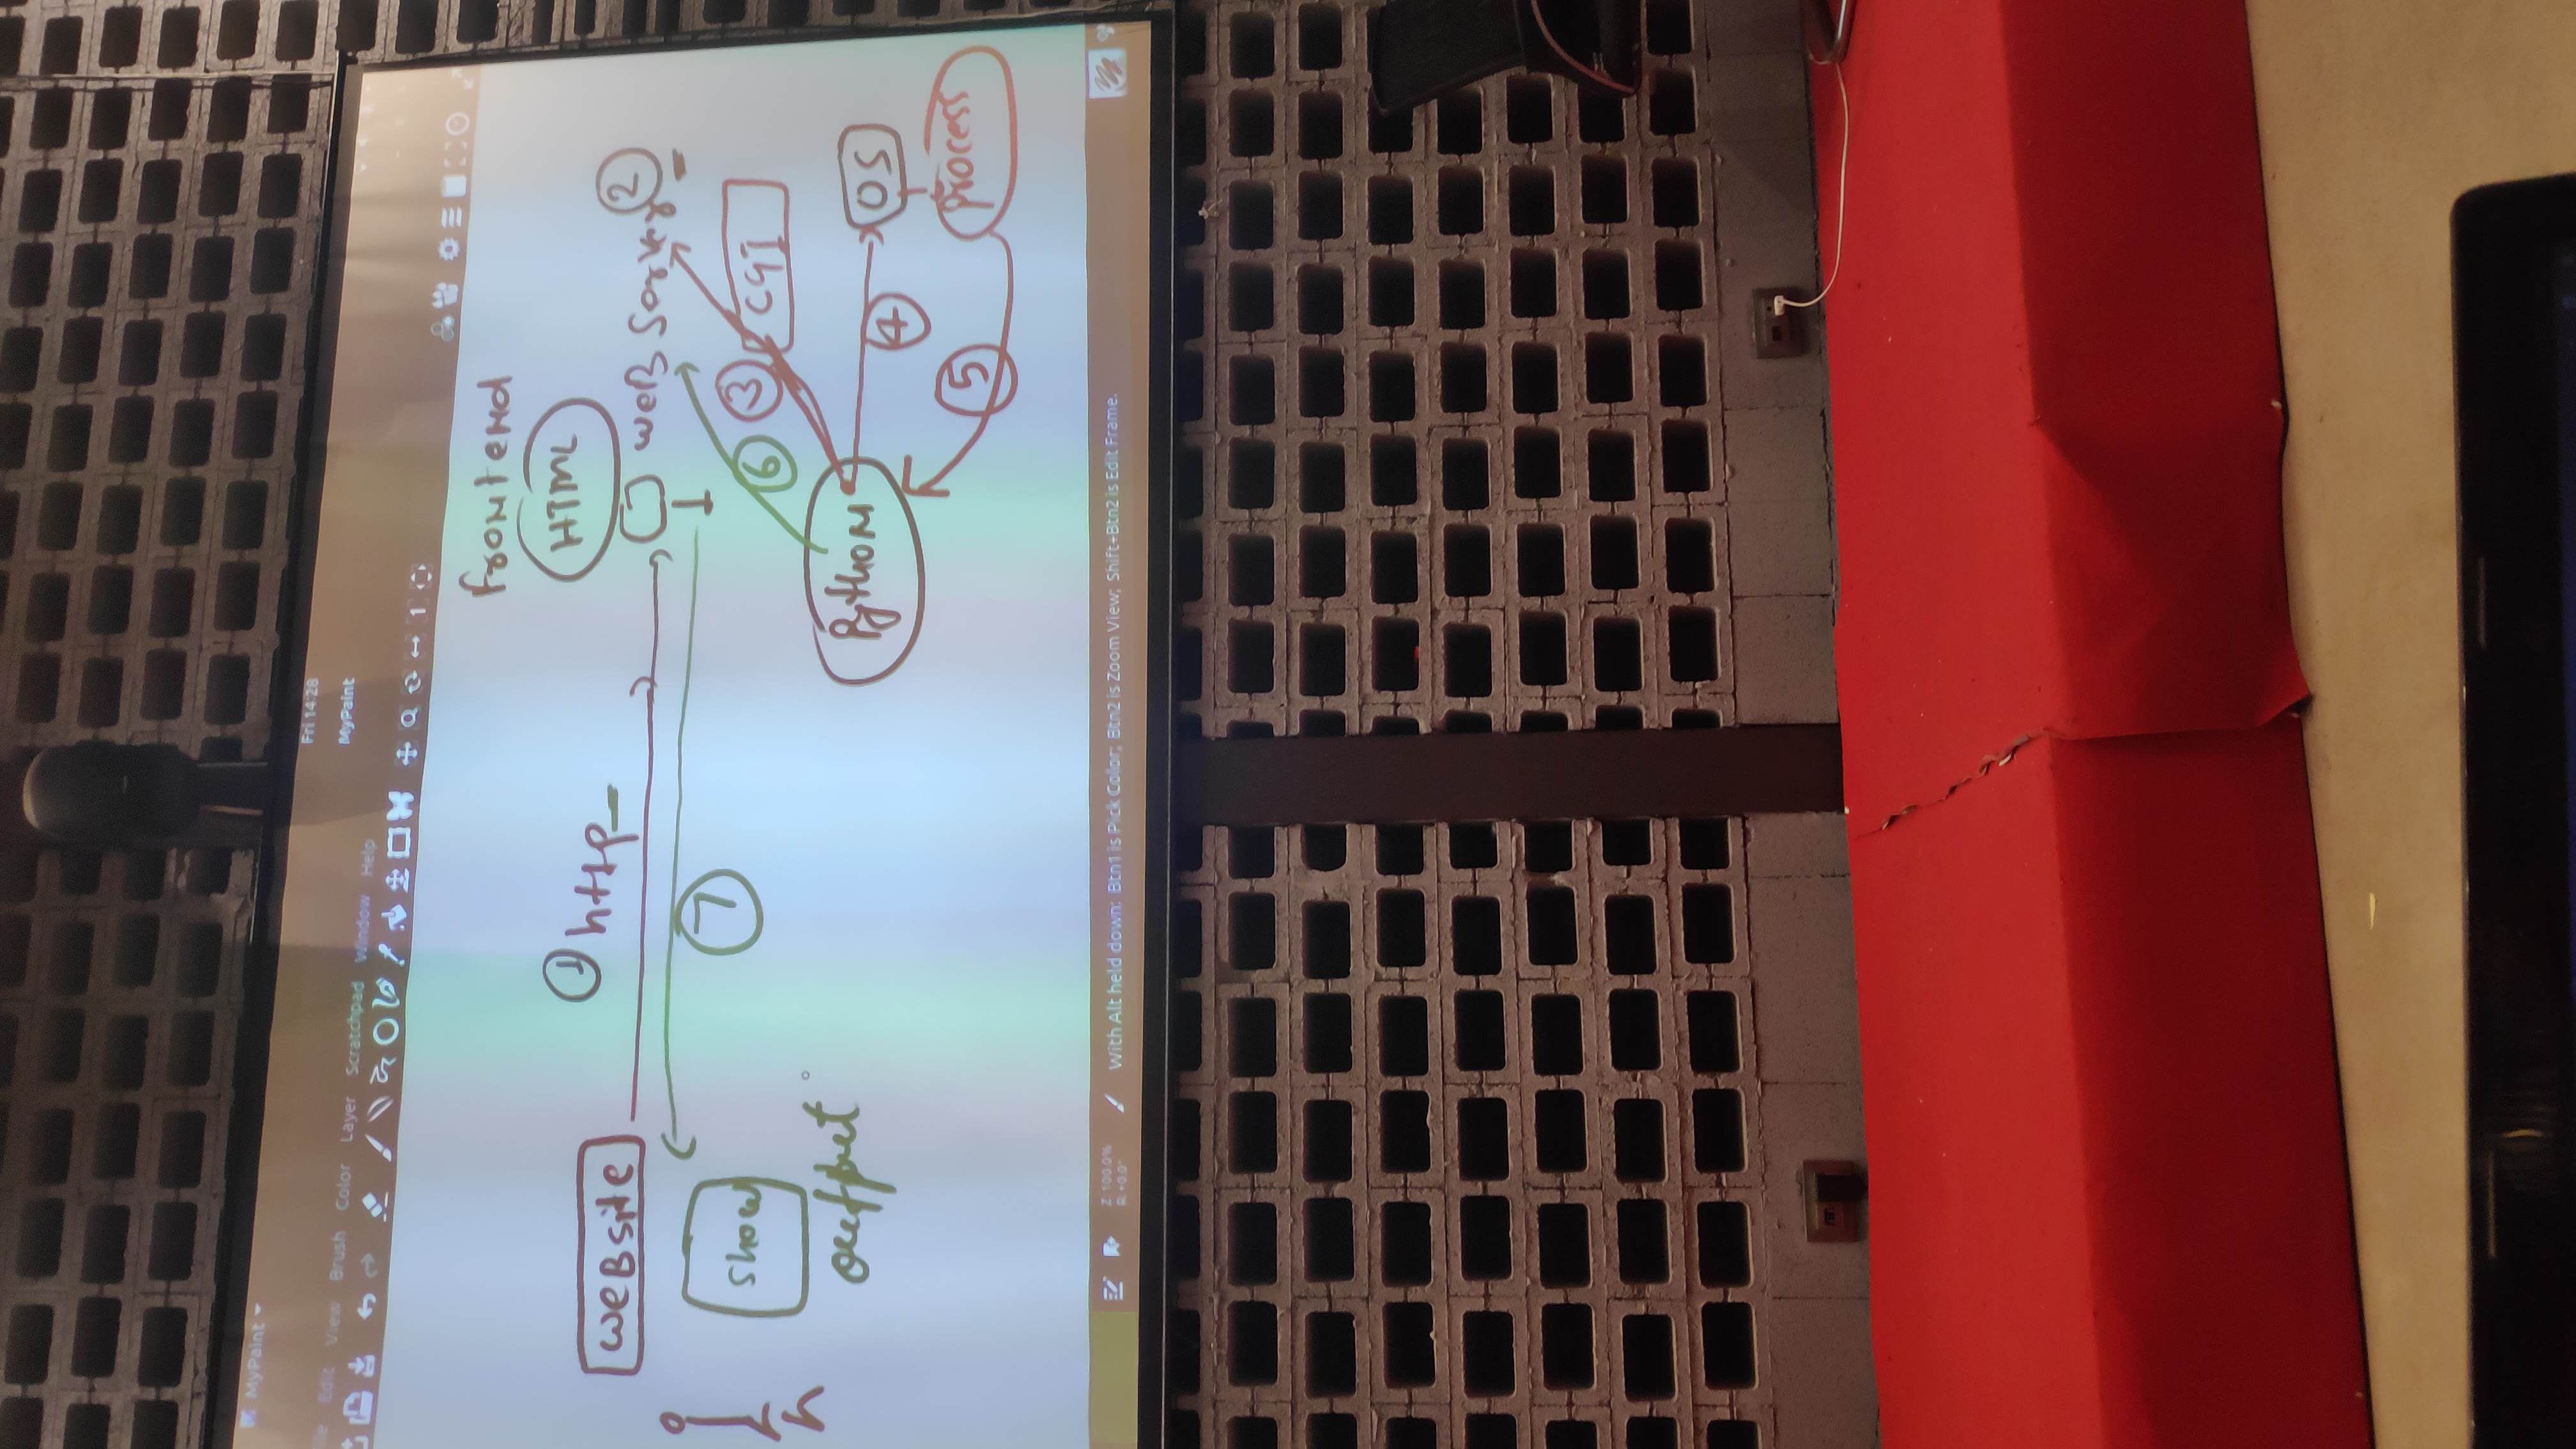 MyPaint
Fri 14:28
MyPaint
File Edit View Brush Color Layer Scratchpad Window Help
1
Frontend
HTML
1 http
WeBsite
weB Server 2
7
show
output
6 3 CGI
Python
4
OS
5
process
Z: 100.0%
R: +0.0°
With Alt held down: Btn1 is Pick Color; Btn2 is Zoom View; Shift+Btn2 is Edit Frame.